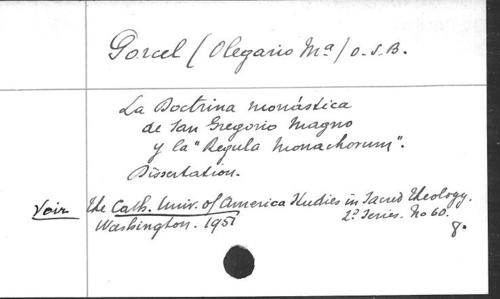 Porcel (Olegario Mª) O.S.B.
La Doctrina monástica
de San Gregorio Magno
y la "Regula Monachorum".
Dissertation.
voir The Cath. Univ. of America Studies in Sacred Theology.
Washington. 1951 2ª Series. No 60.
8º